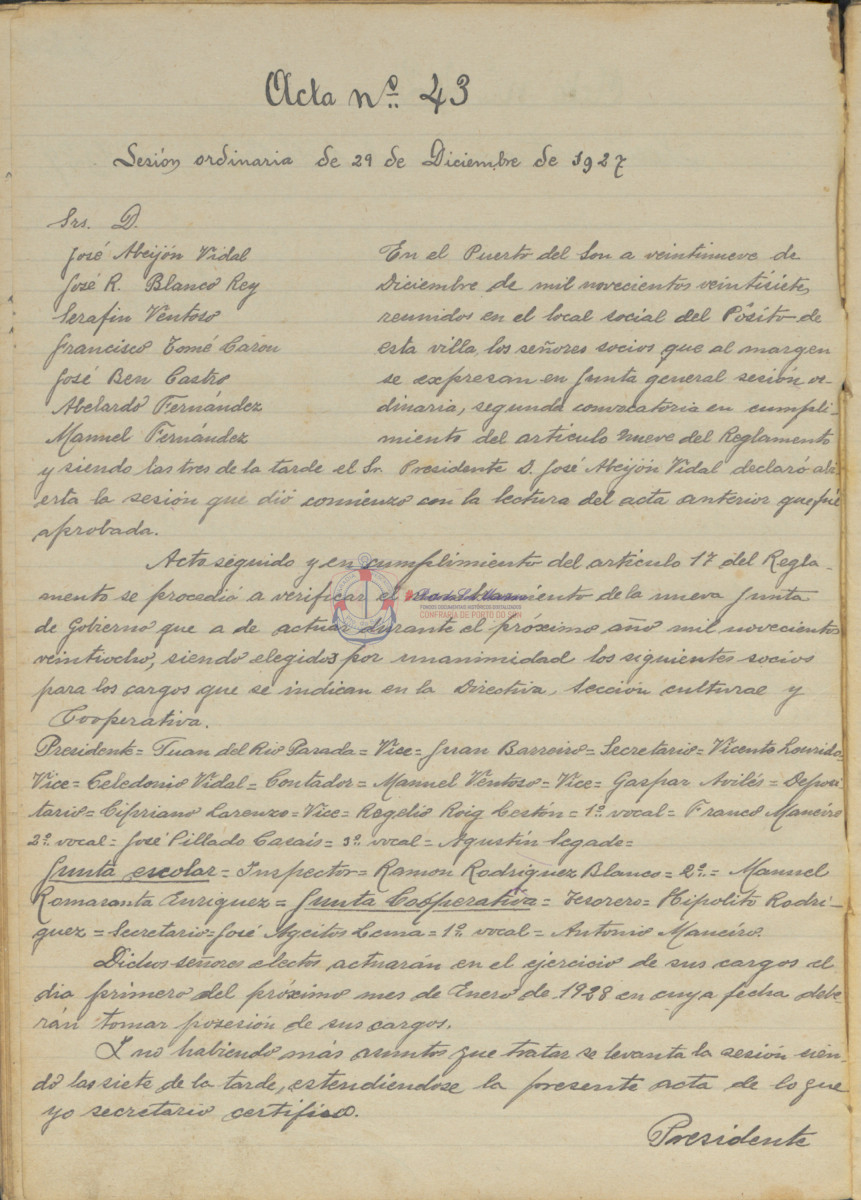 Acta nº. 43
Sesión ordinaria de 29 de Diciembre de 1927
Srs. D.
José Abeijón Vidal
José R. Blanco Rey
Serafin Ventoso
Francisco Tomé Carou
José Ben Castro
Abelardo Fernández
Manuel Fernández
En el Puerto del Son a veintinueve de
Diciembre de mil novecientos veintisiete,
reunidos en el local social del Pósito de
esta villa, los señores socios que al margen
se expresan en Junta general sesión or-
dinaria, segunda convocatoria en cumpli-
miento del articulo nueve del Reglamento
y siendo las tres de la tarde el Sr. Presidente D. José Abeijón Vidal declaró abi-
erta la sesión que dió comienzo con la lectura del acta anterior que fué
aprobada.
Acto seguido y en cumplimiento del articulo 17 del Regla-
mento se procedió a verificar el nombramiento de la nueva Junta
de Gobierno que a de actuar durante el próximo año mil novecientos
veintiocho, siendo elegidos por unanimidad los siguientes socios
para los cargos que se indican en la Directiva, Sección cultural y
Cooperativa.
Presidente = Juan del Rio Parada = Vice = Juan Barreiro = Secretario = Vicente Lourido=
Vice = Celedonio Vidal = Contador = Manuel Ventoso = Vice = Gaspar Avilés = Deposi
tario = Cipriano Lorenzo = Vice = Rogelio Roig Cestón = 1º vocal = Franco Maneiro
2º vocal = José Pillado Casais = 3º vocal = Agustín Segade=
Junta escolar = Inspector = Ramon Rodriguez Blanco = 2º = Manuel
Romasanta Enriquez = Junta Cooperativa = Tesorero = Hipolito Rodri-
guez = Secretario = José Ageitos Lema = 1º vocal = Antonio Maneiro.
Dichos señores electos actuarán en el ejercicio de sus cargos el
dia primero del próximo mes de Enero de 1928 en cuya fecha debe-
rán tomar posesión de sus cargos.
Y no habiendo más asuntos que tratar se levanta la sesión sien-
do las siete de la tarde, estendiendose la presente acta de lo que
yo secretario certifico.
Presidente
FONDOS DOCUMENTAIS HISTÓRICOS DIXITALIZADOS
CONFRARÍA DE PORTO DO SON